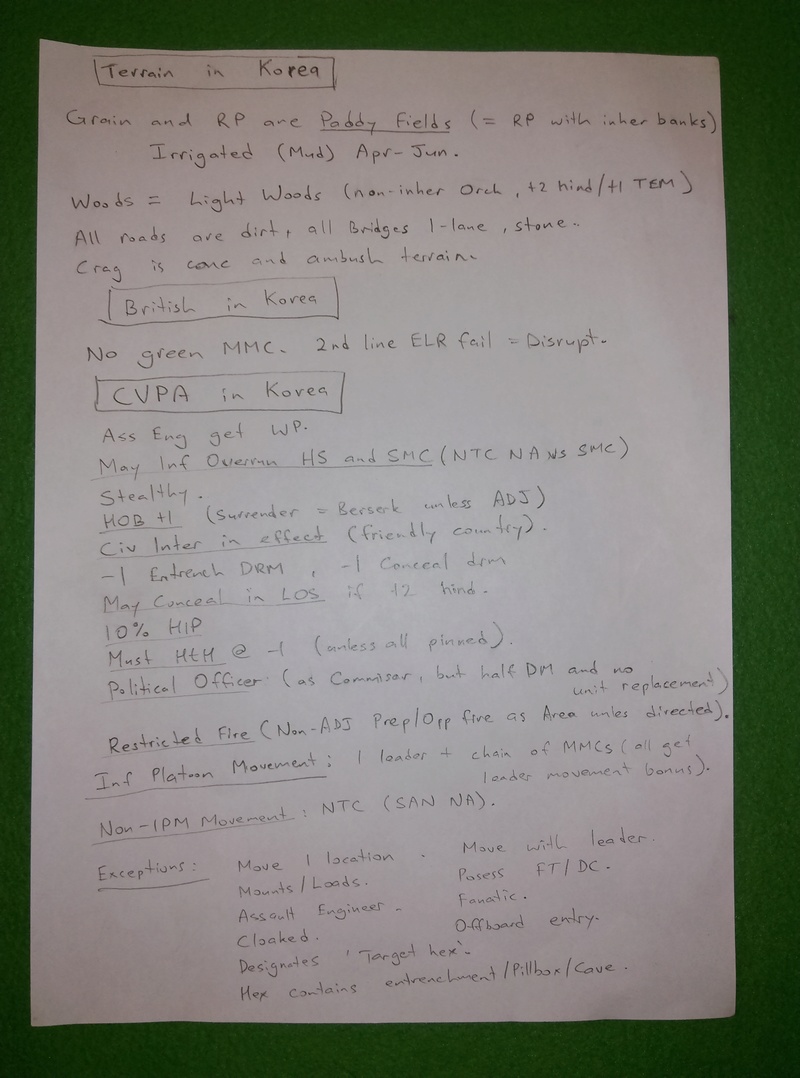 Terrain in Korea
Grain and RP are Paddy Fields (= RP with inher banks)
Irrigated (Mud) Apr-Jun.
Woods = Light Woods (non-inher Orch, +2 hind/+1 TEM)
All roads are dirt, all Bridges 1-lane, stone.
Crag is conc and ambush terrain.
British in Korea
No green MMC. 2nd line ELR fail = Disrupt.
CVPA in Korea
Ass Eng get WP.
May Inf Overrun HS and SMC (NTC NA vs SMC)
Stealthy.
HOB +1 (Surrender = Berserk unless ADJ)
Civ Inter in effect (friendly country).
-1 Entrench DRM, -1 Conceal drm
May Conceal in LOS if +2 hind.
10% HIP
Must HtH @ -1 (unless all pinned).
Political Officer: (as Commisar, but half DM and no
unit replacement)
Restricted Fire (Non-ADJ Prep/Opp fire as Area unles directed).
Inf Platoon Movement: 1 leader + chain of MMCs (all get
leader movement bonus).
Non-IPM Movement: NTC (SAN NA).
Exceptions: Move 1 location. Move with leader.
Mounts/Loads. Posess FT/DC.
Assault Engineer. Fanatic.
Cloaked. Offboard entry.
Designates 'Target hex'.
Hex contains entrenchment/Pillbox/Cave.